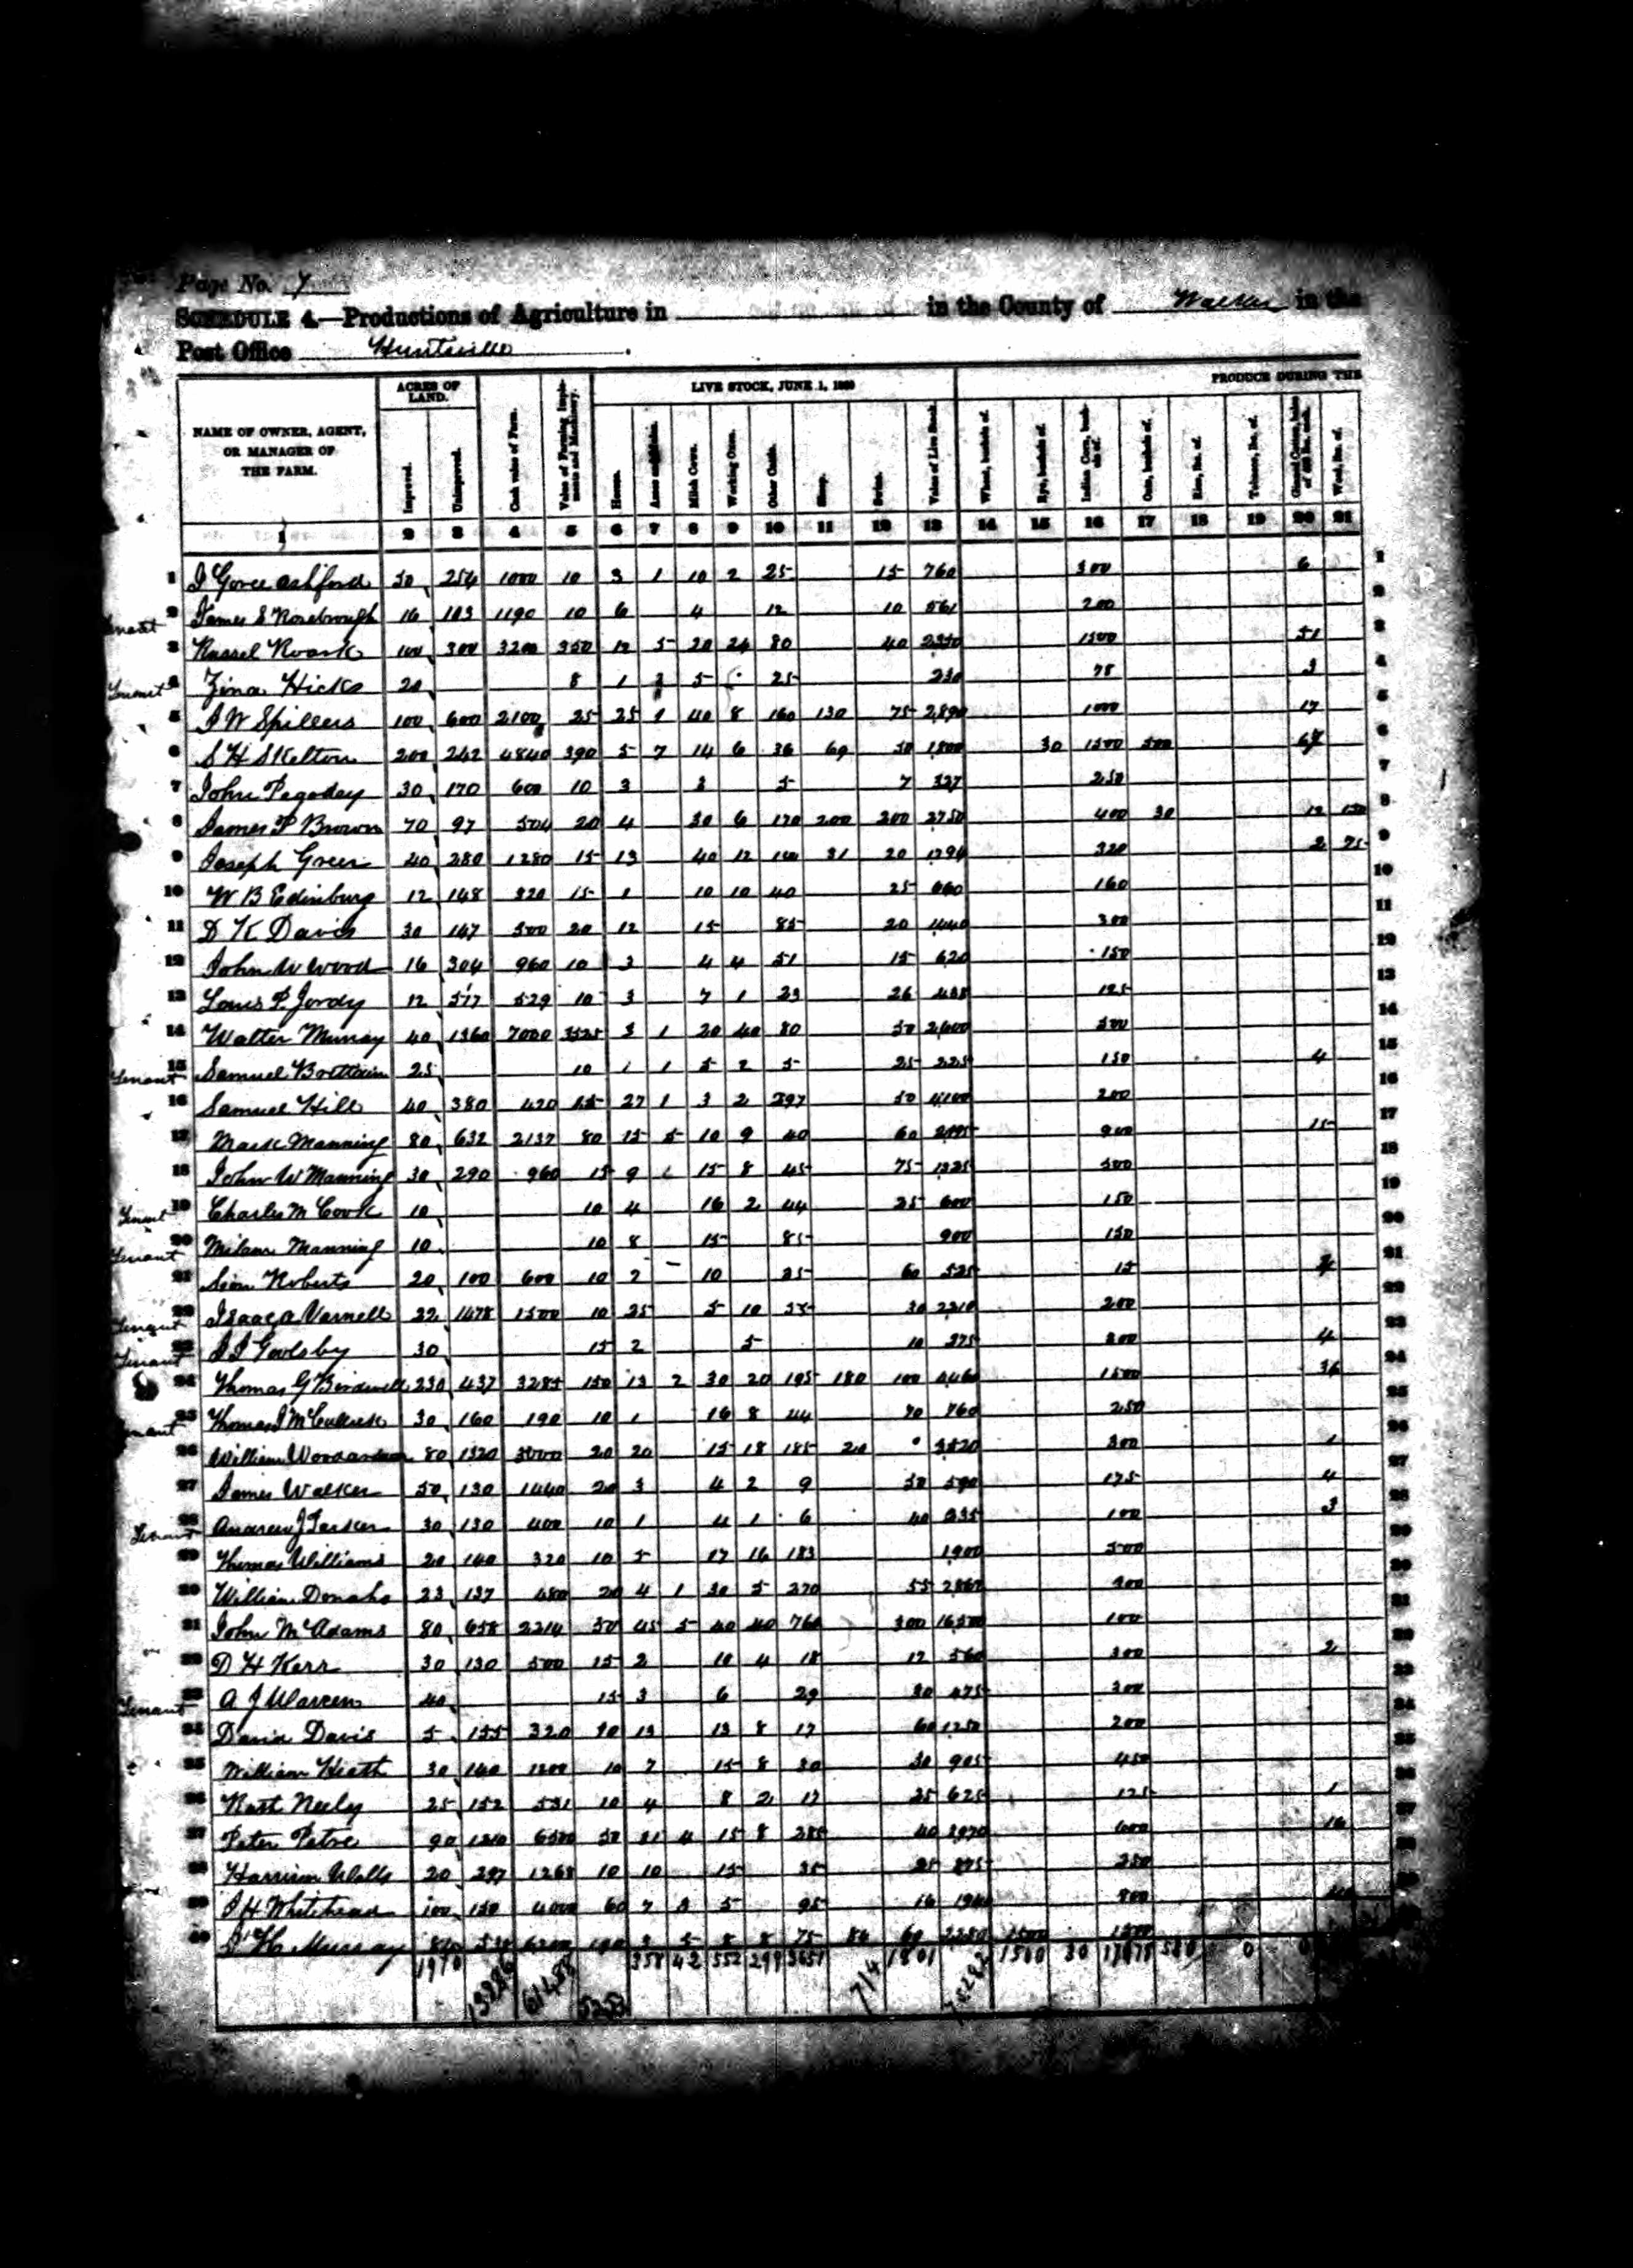 Page No. 7
SCHEDULE 4.—Productions of Agriculture in in the County of Walker in the
Post Office Huntsville
NAME OF OWNER, AGENT, OR MANAGER OF THE FARM.
ACRES OF LAND.
Improved.
Unimproved.
Cash value of Farm.
Value of Farming Implements and Machinery.
LIVE STOCK, JUNE 1, 1860
Horses.
Asses and Mules.
Milch Cows.
Working Oxen.
Other Cattle.
Sheep.
Swine.
Value of Live Stock.
PRODUCE DURING THE
Wheat, bushels of.
Rye, bushels of.
Indian Corn, bushels of.
Oats, bushels of.
Rice, lbs. of.
Tobacco, lbs. of.
Ginned Cotton, bales of 400 lbs. each.
Wool, lbs. of.
1 2 3 4 5 6 7 8 9 10 11 12 13 14 15 16 17 18 19 20 21
1 J Goree Ashford 50 254 1000 10 3 1 10 2 25 15 760 300 6 1
Tenant 2 James S Rosebrough 16 103 1190 10 6 4 12 10 561 200 2
3 Russel Roark 100 300 3200 350 12 5 20 24 80 40 2350 1500 51 3
Tenant 4 Zina Hicks 20 8 1 5 25 230 75 3 4
5 J W Spillers 100 600 2100 25 25 1 40 8 160 130 75 2890 1000 17 5
6 S H Skelton 200 242 4840 390 5 7 14 6 36 69 50 1800 30 1500 500 6
7 John Pagoday 30 170 600 10 3 3 5 7 337 250 7
8 James P Brown 70 97 504 20 4 30 6 170 200 200 2750 400 30 12 150 8
9 Joseph Green 40 280 1280 15 13 40 12 100 31 20 1794 320 2 75 9
10 W B Edinburg 12 148 320 15 1 10 10 40 25 660 160 10
11 D K Davis 30 147 500 20 12 15 85 20 1440 300 11
12 John W Wood 16 304 960 10 3 4 4 51 15 620 150 12
13 Louis P. Jordy 12 517 529 10 3 7 1 23 26 438 125 13
14 Walter Murray 40 1360 7000 3525 3 1 20 40 80 50 2600 500 14
Tenant 15 Samuel 25 10 1 1 5 2 5 25 225 150 4 15
16 Samuel Hill 40 380 420 15 27 1 3 2 397 50 4100 200 16
17 Mark Manning 80 632 2137 80 15 5 10 9 40 60 900 15 17
18 John W Manning 30 290 960 15 9 1 15 8 45 75 1325 500 18
Tenant 19 Charles M Cook 10 10 4 16 2 44 25 600 150 19
Tenant 20 Milam Manning 10 10 8 15 85 900 150 20
21 Roberts 20 100 600 10 2 10 25 60 525 15 21
Tenant 22 Isaac A Varnell 22 1478 1500 10 25 5 10 55 30 2210 200 22
Tenant 23 J J Goolsby 30 15 2 5 10 375 200 4 23
24 Thomas G Birdwell 230 437 3285 150 13 2 30 20 195 180 100 4460 1500 36 24
Tenant 25 Thomas J 30 160 190 10 1 16 8 44 70 760 250 25
26 William 80 1320 3000 20 20 15 18 185 20 3520 300 1 26
27 James Walker 50 130 1440 20 3 4 2 9 50 590 175 4 27
Tenant 28 Andrew J 30 130 400 10 1 4 1 6 40 235 100 3 28
29 Thomas Williams 20 140 320 10 5 17 16 183 1900 500 29
30 William Donaho 23 137 480 20 4 1 30 5 270 55 2860 400 30
31 John McAdams 80 658 2214 50 45 5 40 40 760 300 16500 100 31
32 D H Kerr 30 130 500 15 2 10 4 18 12 560 300 2 32
Tenant 33 A J Warren 40 15 3 6 29 30 475 300 33
34 David Davis 5 155 320 20 13 13 8 17 60 1250 200 34
35 William Heath 30 140 1200 10 7 15 8 30 30 905 450 35
36 Neely 25 152 531 10 4 8 2 17 25 625 125 1 36
37 Peter Petre 90 1210 6500 50 31 4 15 8 285 40 2970 600 16 37
38 Harrison Wells 20 297 1268 10 10 15 35 25 875 250 38
39 J H Whitehead 100 150 4000 60 7 3 5 95 16 800 39
40 Murray 5 8 8 75 86 60 2280 1500 1500
1970 13286 61488 5253 358 42 552 299 3657 714 1801 1500 30 17675 530 0 0